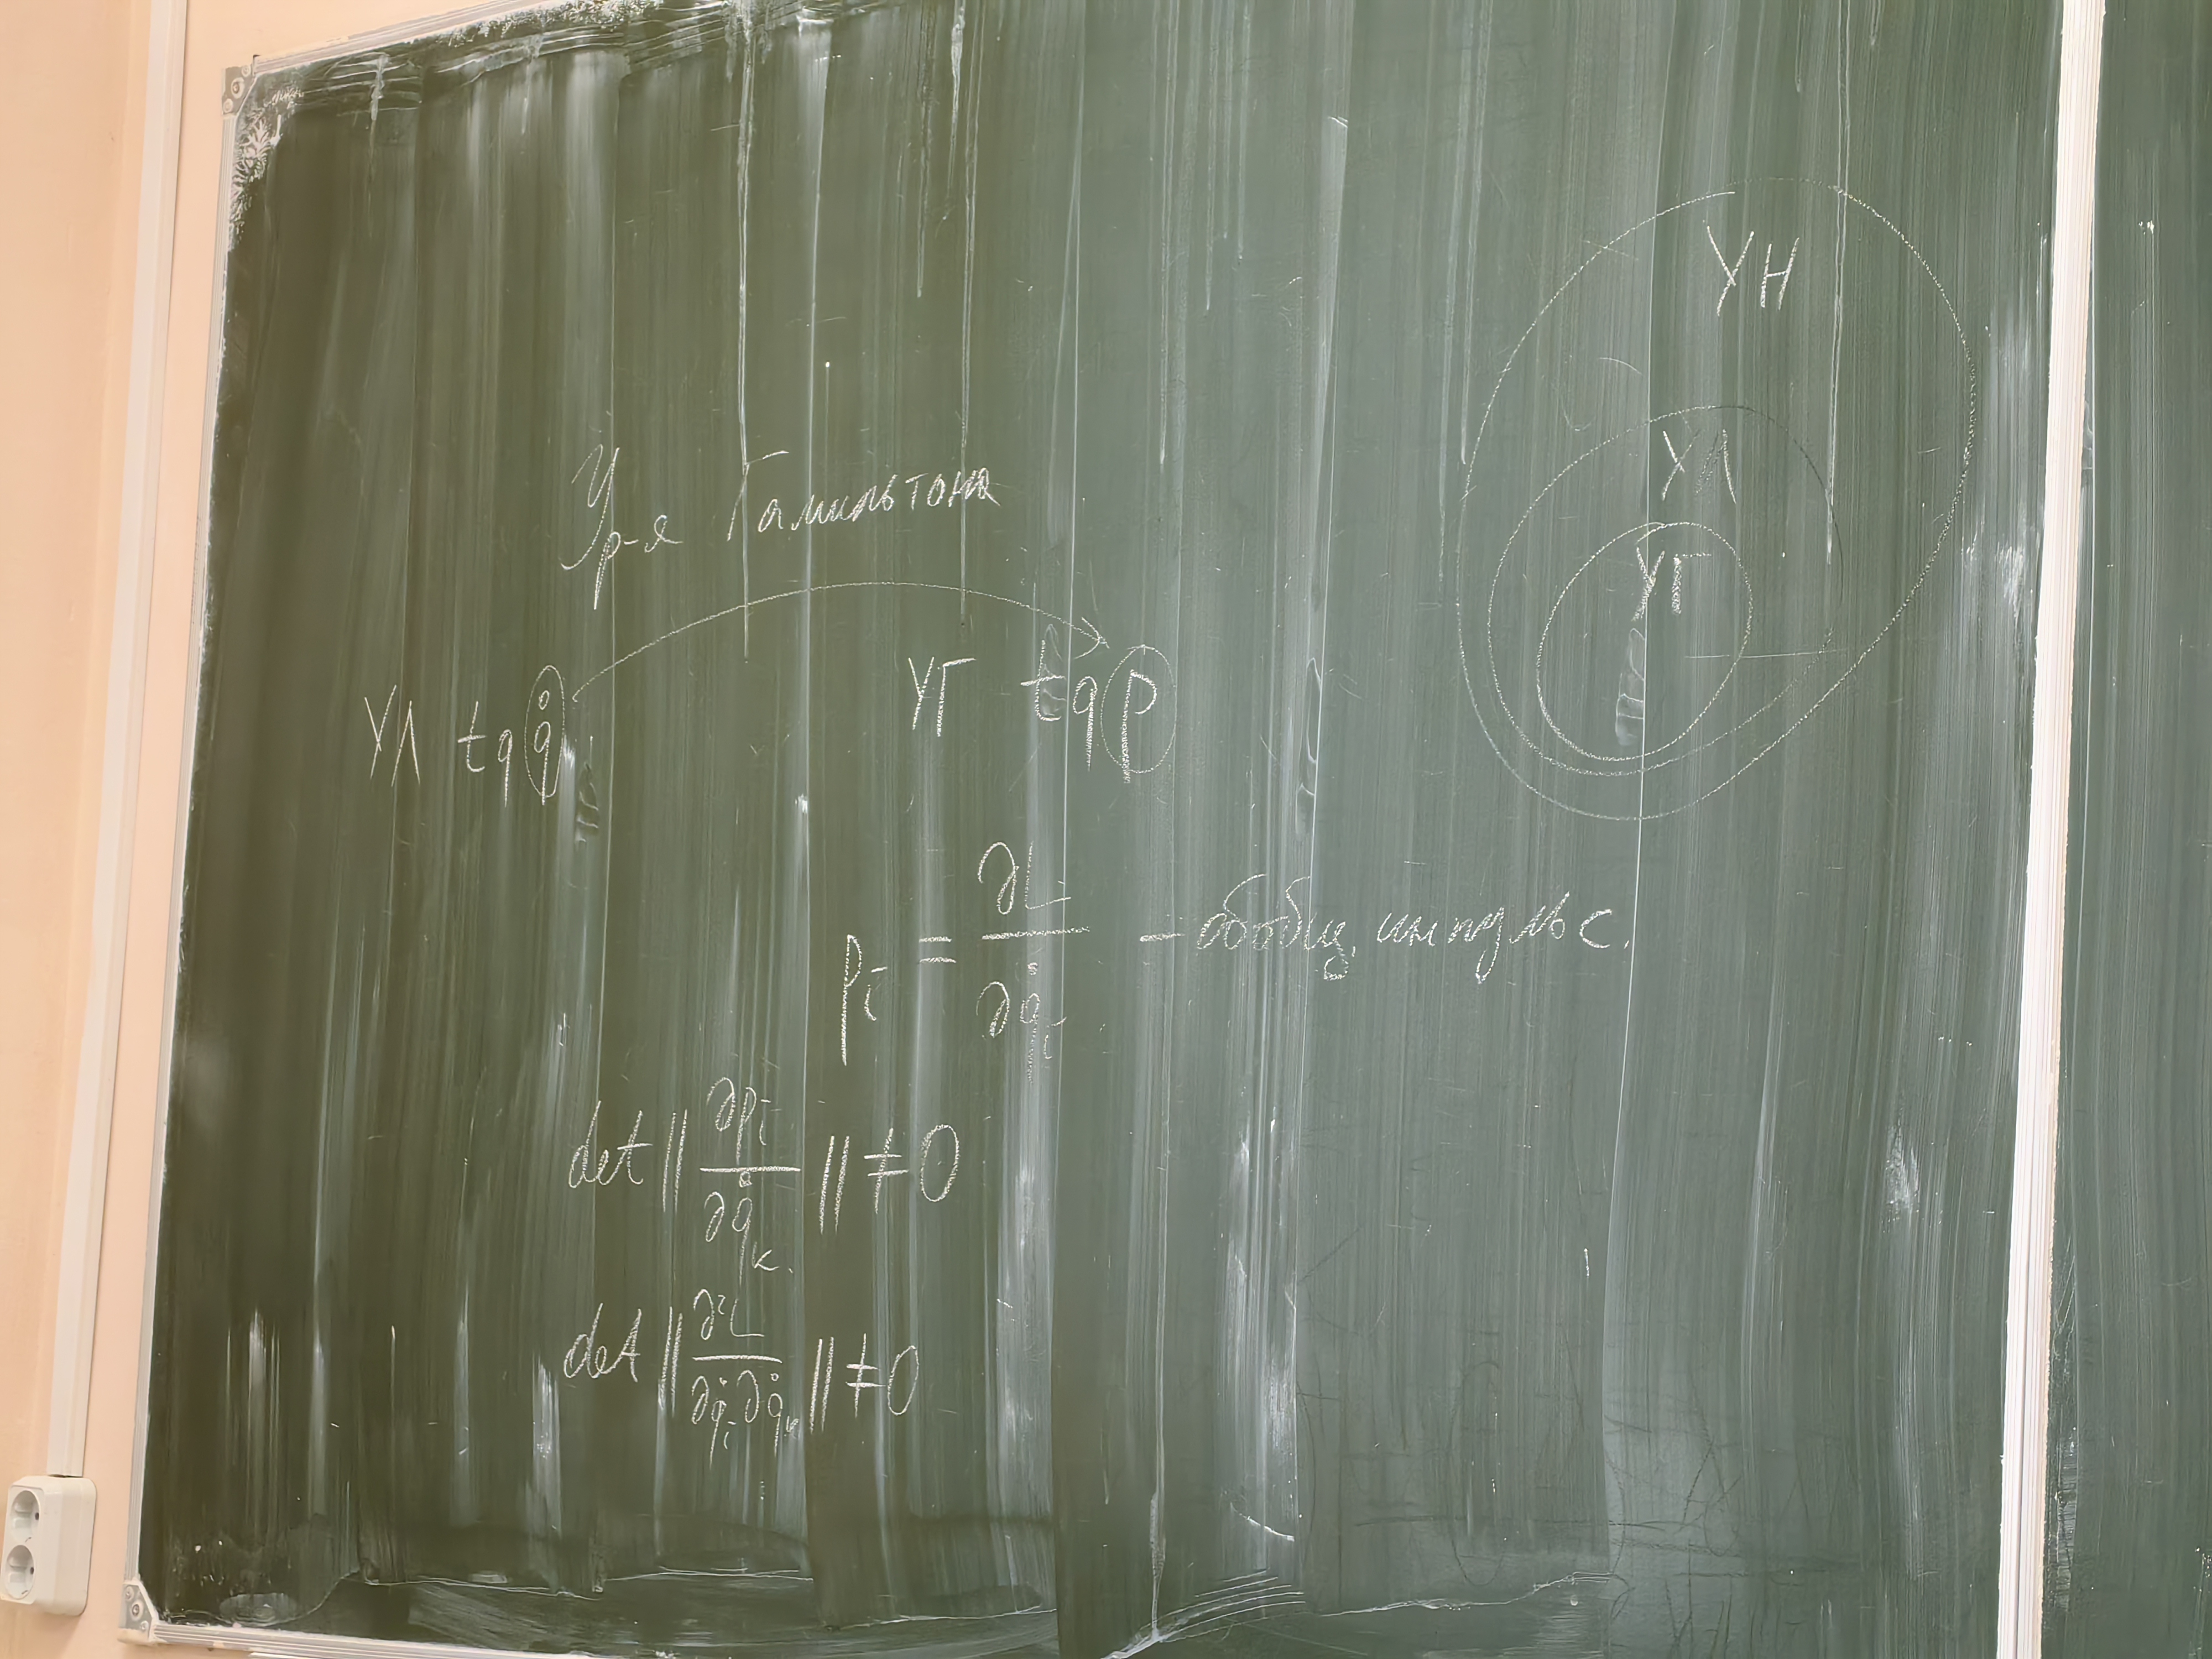 УН
УЛ
УГ
Ур-я Гамильтона
УЛ t q q̇
УГ t q p
pᵢ = ∂L/∂q̇ᵢ - обобщ. импульс.
det ‖∂pᵢ/∂q̇ₖ‖ ≠ 0
det ‖∂²L/∂q̇ᵢ∂q̇ₖ‖ ≠ 0